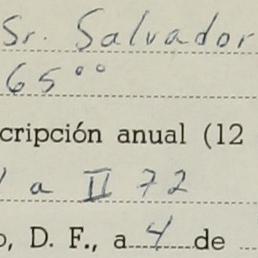 Sr. Salvador
65°°
cripción anual (12
a II 72
o, D. F., a 4 de